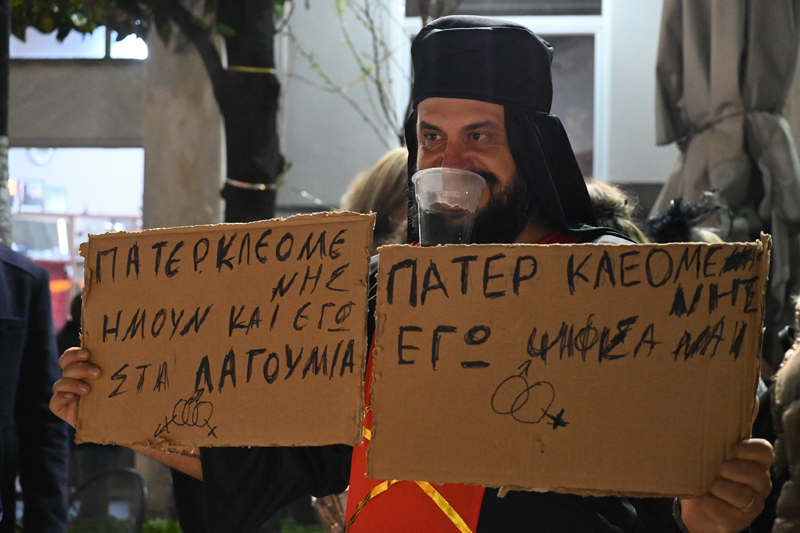 ΠΑΤΕΡ ΚΛΕΟΜΕ
ΝΗΣ
ΗΜΟΥΝ ΚΑΙ ΕΓΩ
ΣΤΑ ΛΑΓΟΥΜΙΑ
ΠΑΤΕΡ ΚΛΕΟΜΕ
ΝΗΣ
ΕΓΩ ΨΗΦΙΣΑ ΝΑΙ